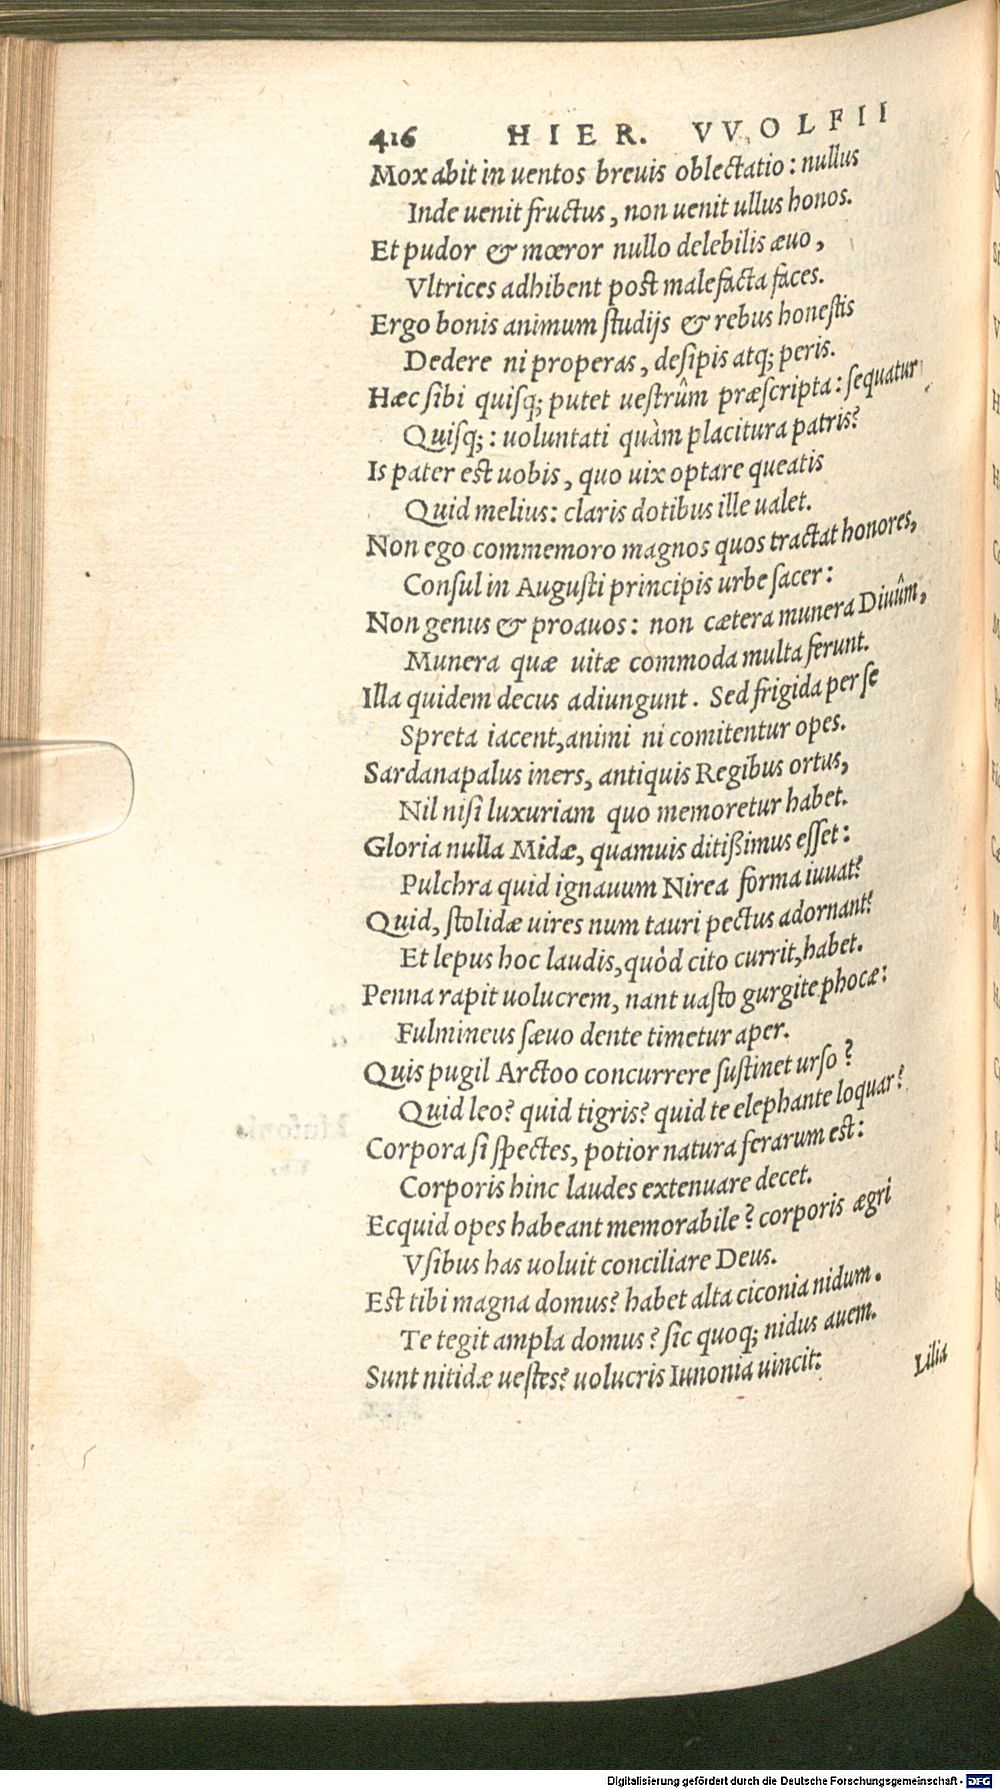 416 HIER. VVOLFII
Mox abit in uentos breuis oblectatio: nullus
Inde uenit fructus, non uenit ullus honos.
Et pudor & mœror nullo delebilis æuo,
Vltrices adhibent post malefacta faces.
Ergo bonis animum ſtudijs & rebus honeſtis
Dedere ni properas, deſipis atq; peris.
Hæc ſibi quiſq; putet ueſtrûm præſcripta: ſequatur
Quiſq;: uoluntati quàm placitura patris?
Is pater est uobis, quo uix optare queatis
Quid melius: claris dotibus ille ualet.
Non ego commemoro magnos quos tractat honores,
Conſul in Auguſti principis urbe ſacer:
Non genus & proauos: non cætera munera Diuûm,
Munera quæ uitæ commoda multa ferunt.
Illa quidem decus adiungunt. Sed frigida per ſe
Spreta iacent, animi ni comitentur opes.
Sardanapalus iners, antiquis Regibus ortus,
Nil niſi luxuriam quo memoretur habet.
Gloria nulla Midæ, quamuis ditißimus eſſet:
Pulchra quid ignauum Nirea forma iuuat?
Quid, ſtolidæ uires num tauri pectus adornant?
Et lepus hoc laudis, quòd cito currit, habet.
Penna rapit uolucrem, nant uaſto gurgite phocæ:
Fulmineus ſæuo dente timetur aper.
Quis pugil Arctoo concurrere ſuſtinet urſo?
Quid leo? quid tigris? quid te elephante loquar?
Corpora ſi ſpectes, potior natura ferarum est:
Corporis hinc laudes extenuare decet.
Ecquid opes habeant memorabile? corporis ægri
Vſibus has uoluit conciliare Deus.
Est tibi magna domus? habet alta ciconia nidum.
Te tegit ampla domus? ſic quoq; nidus auem.
Sunt nitidæ ueſtes? uolucris Iunonia uincit:
Lilia
Digitalisierung gefördert durch die Deutsche Forschungsgemeinschaft - DFG